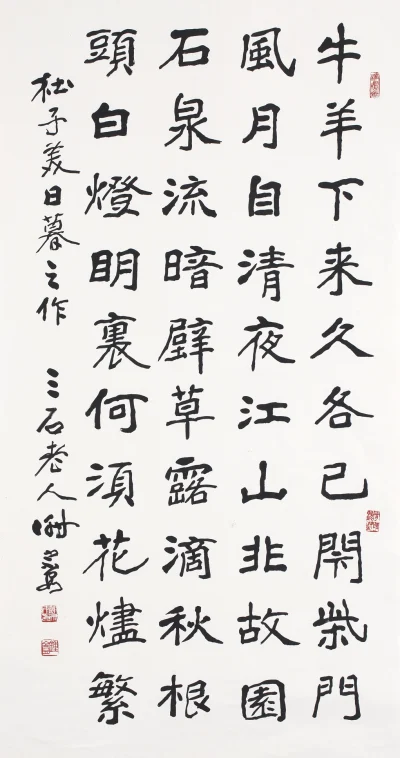 牛羊下来久各已閇柴門
風月自清夜江山非故園
石泉流暗壁草露滴秋根
頭白燈明裏何須花燼繁
杜子美日暮之作 三石老人